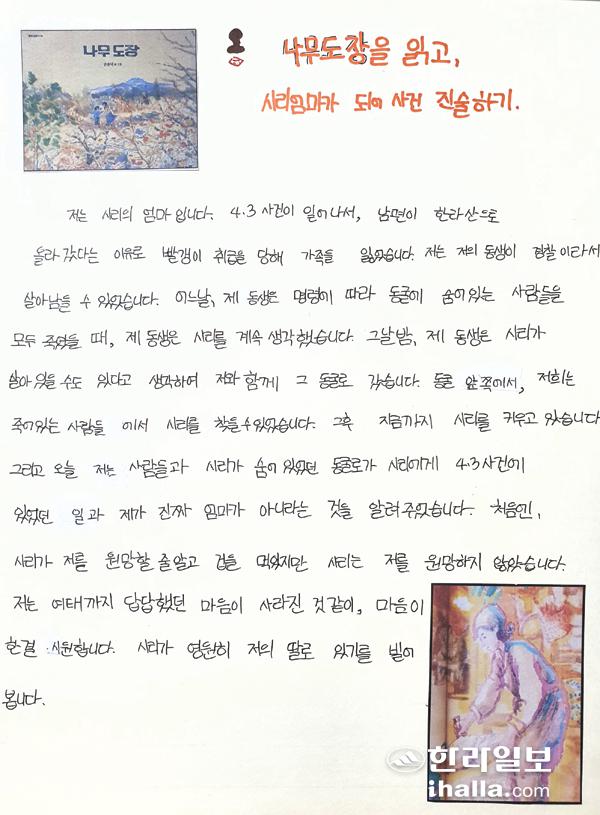 나무도장
나무도장을 읽고,
시리엄마가 되어 사건 진술하기.
저는 시리의 엄마입니다. 4.3 사건이 일어나서, 남편이 한라산으로
올라갔다는 이유로 빨갱이 취급을 당해 가족들 잃었습니다. 저는 저의 동생이 경찰이라서
살아남을 수 있었습니다. 어느날, 제 동생은 명령에 따라 동굴에 숨어있는 사람들을
모두 죽였을 때, 제 동생은 시리를 계속 생각했습니다. 그날밤, 제 동생은 시리가
살아있을 수도 있다고 생각하여 저와 함께 그 동굴로 갔습니다. 동굴 앞쪽에서, 저희는
죽어있는 사람들 에서 시리를 찾을 수 있었습니다. 그후 지금까지 시리를 키우고 있습니다
그리고 오늘 저는 사람들과 시리가 숨어있었던 동굴로가 시리에게 4.3사건에
있었던 일과 제가 진짜 엄마가 아니라는 것을 알려주었습니다. 처음엔,
시리가 저를 원망할 줄알고 겁을 먹었지만 시리는 저를 원망하지 않았습니다.
저는 여태까지 답답했던 마음이 사라진 것같이, 마음이
한결 시원합니다. 시리가 영원히 저의 딸로 있기를 빌어
봅니다.
한라일보
ihalla.com